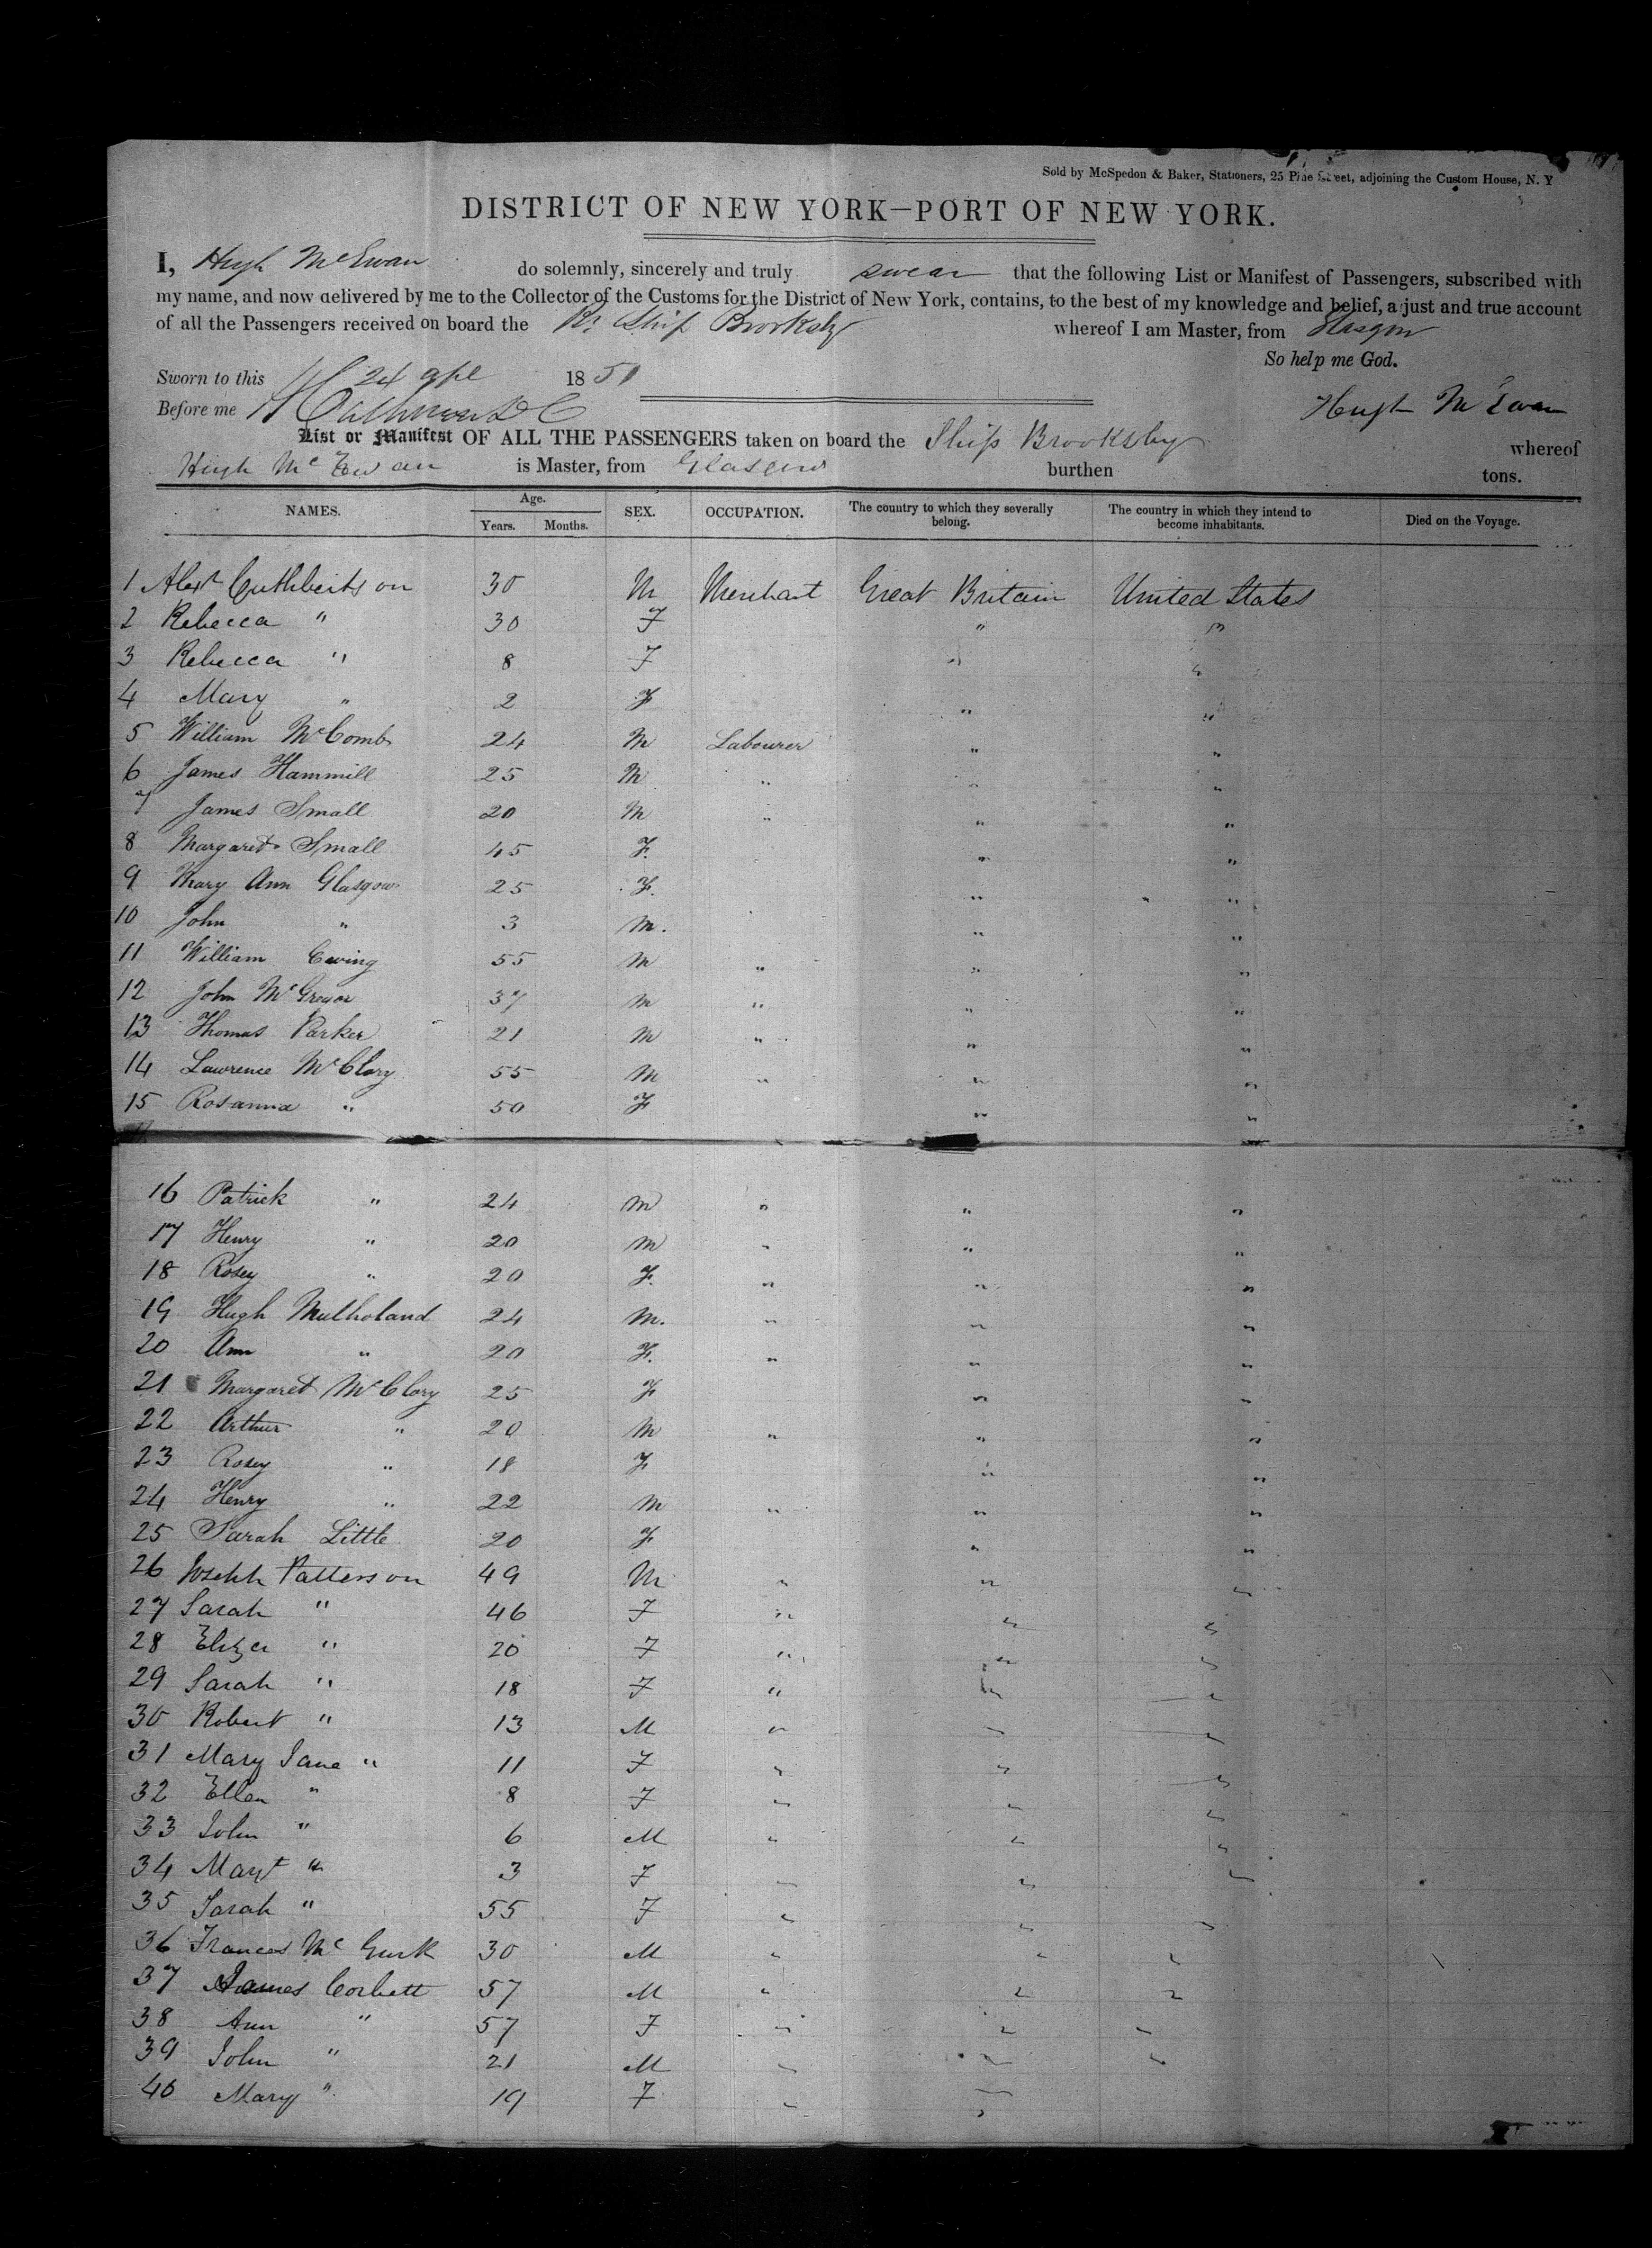 Sold by McSpedon & Baker, Stationers, 25 Pine Street, adjoining the Custom House, N. Y
DISTRICT OF NEW YORK—PORT OF NEW YORK.
I, Hugh McEwan do solemnly, sincerely and truly swear that the following List or Manifest of Passengers, subscribed with
my name, and now delivered by me to the Collector of the Customs for the District of New York, contains, to the best of my knowledge and belief, a just and true account
of all the Passengers received on board the Br Ship Brooksby whereof I am Master, from Glasgow
So help me God.
Sworn to this 24 apl 1851
Before me Hugh McEwan
List or Manifest OF ALL THE PASSENGERS taken on board the Ship Brooksby whereof
Hugh McEwan is Master, from Glasgow burthen tons.
NAMES. Age. Years. Months. SEX. OCCUPATION. The country to which they severally belong. The country in which they intend to become inhabitants. Died on the Voyage.
1 Alexr Cuthbertson 30 M Merchant Great Britain United States
2 Rebecca " 30 F " "
3 Rebecca " 8 F " "
4 Mary " 2 F " "
5 William McComb 24 M Labourer " "
6 James Hammill 25 M " " "
7 James Small 20 M " " "
8 Margaret Small 45 F. " "
9 Mary Ann Glasgow 25 F. " "
10 John " 3 M. " "
11 William Ewing 55 M " " "
12 John McGregor 37 M " " "
13 Thomas Parker 21 M " " "
14 Lawrence McClory 55 M " " "
15 Rosanna " 50 F " "
16 Patrick " 24 M " " "
17 Henry " 20 M " " "
18 Rosey " 20 F. " " "
19 Hugh Mulholand 24 M. " " "
20 Ann " 20 F. " " "
21 Margaret McClory 25 F " "
22 Arthur " 20 M " " "
23 Rosey " 18 F " "
24 Henry " 22 M " " "
25 Sarah Little 20 F " "
26 Joseph Patterson 49 M " " "
27 Sarah " 46 F " " "
28 Eliza " 20 F " " "
29 Sarah " 18 F " " "
30 Robert " 13 M " " "
31 Mary Jane " 11 F " " "
32 Ellen " 8 F " " "
33 John " 6 M " " "
34 Margt " 3 F " " "
35 Sarah " 55 F " " "
36 Frances McGurk 30 M " " "
37 James Corbett 57 M " " "
38 Ann " 57 F " " "
39 John " 21 M " " "
40 Mary " 19 F " "